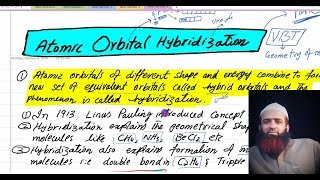 Atomic Orbital Hybridization
VBT
Geometry of m
① Atomic orbitals of different shape and energy combine to for
new set of equivalent orbitals called hybrid orbitals and the
phenomenon is called hybridization.
① In 1913, Linus Pauling introduced Concept
② Hybridization explains the geometrical shap
molecules like CH₄, NH₃, BeCl₂ etc
③ Hybridization also explains formation of m
molecules i.e double bond in C₂H₄ & Tripple